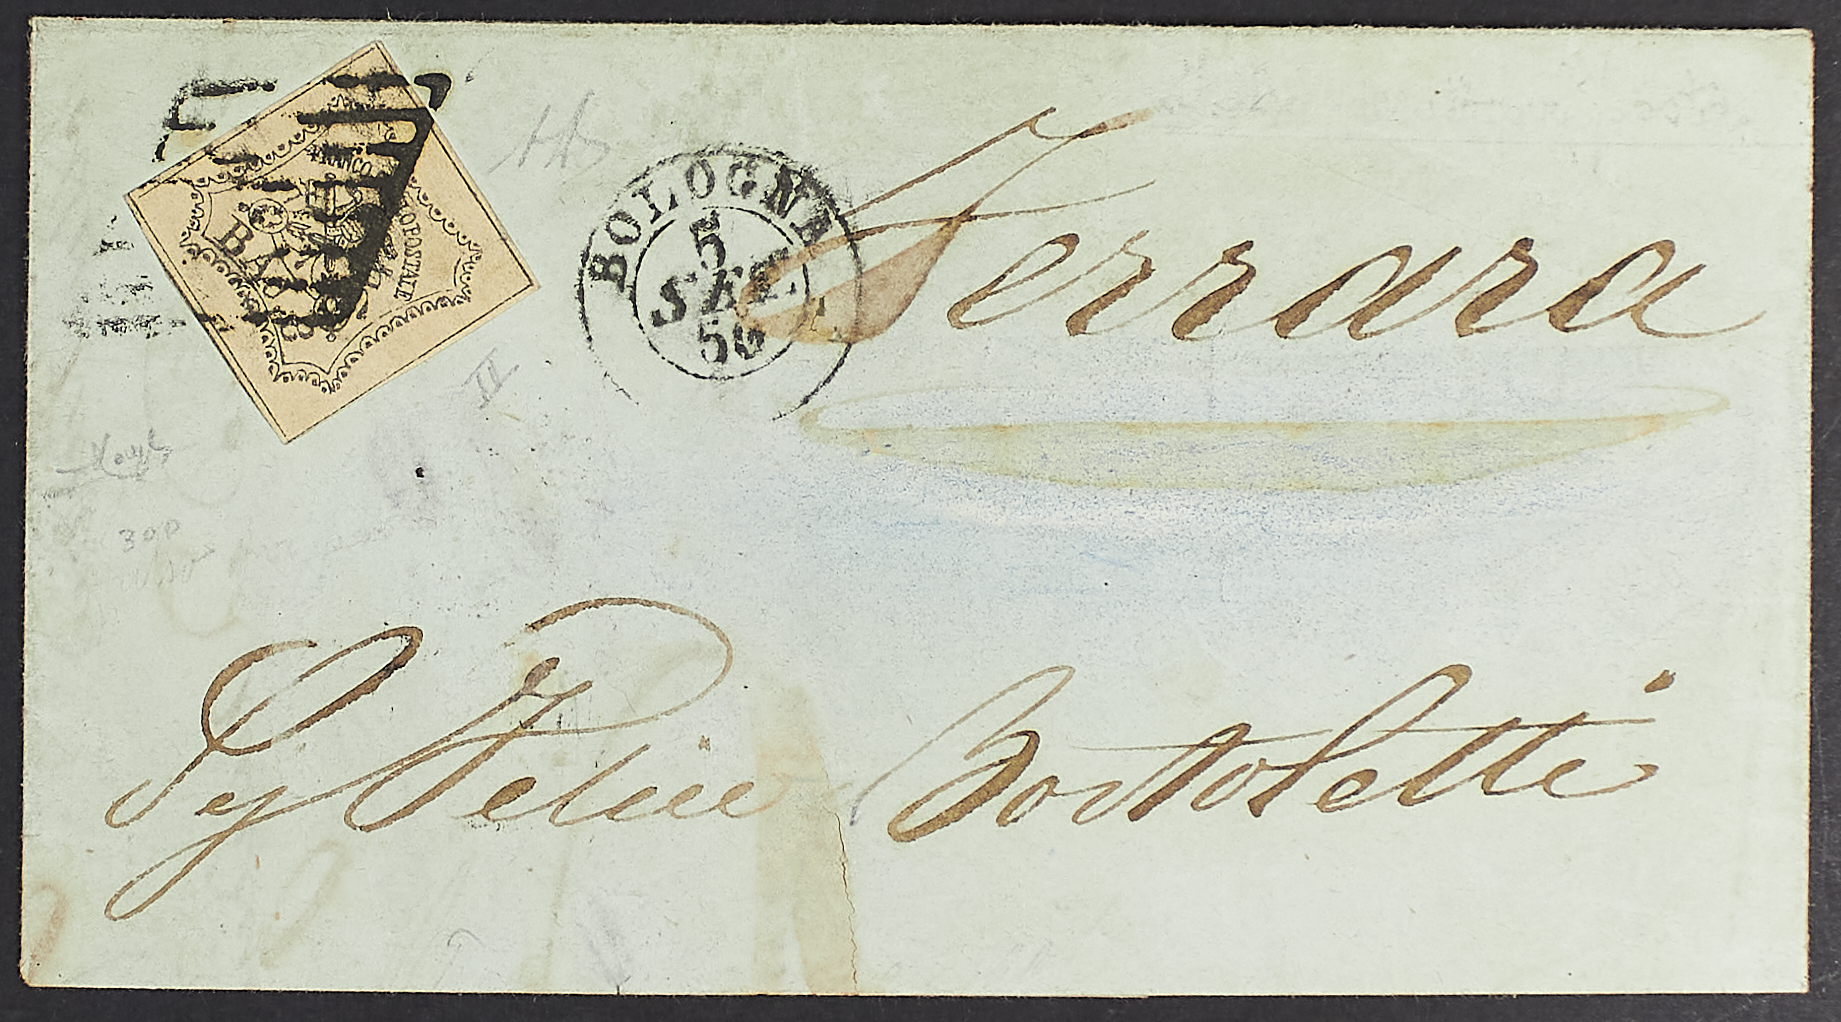 FRANCO BOLLO POSTALE
BAJ 8
BOLOGNA
5
SET
56
Ferrara
II
300
Sig Felice Bortoletti